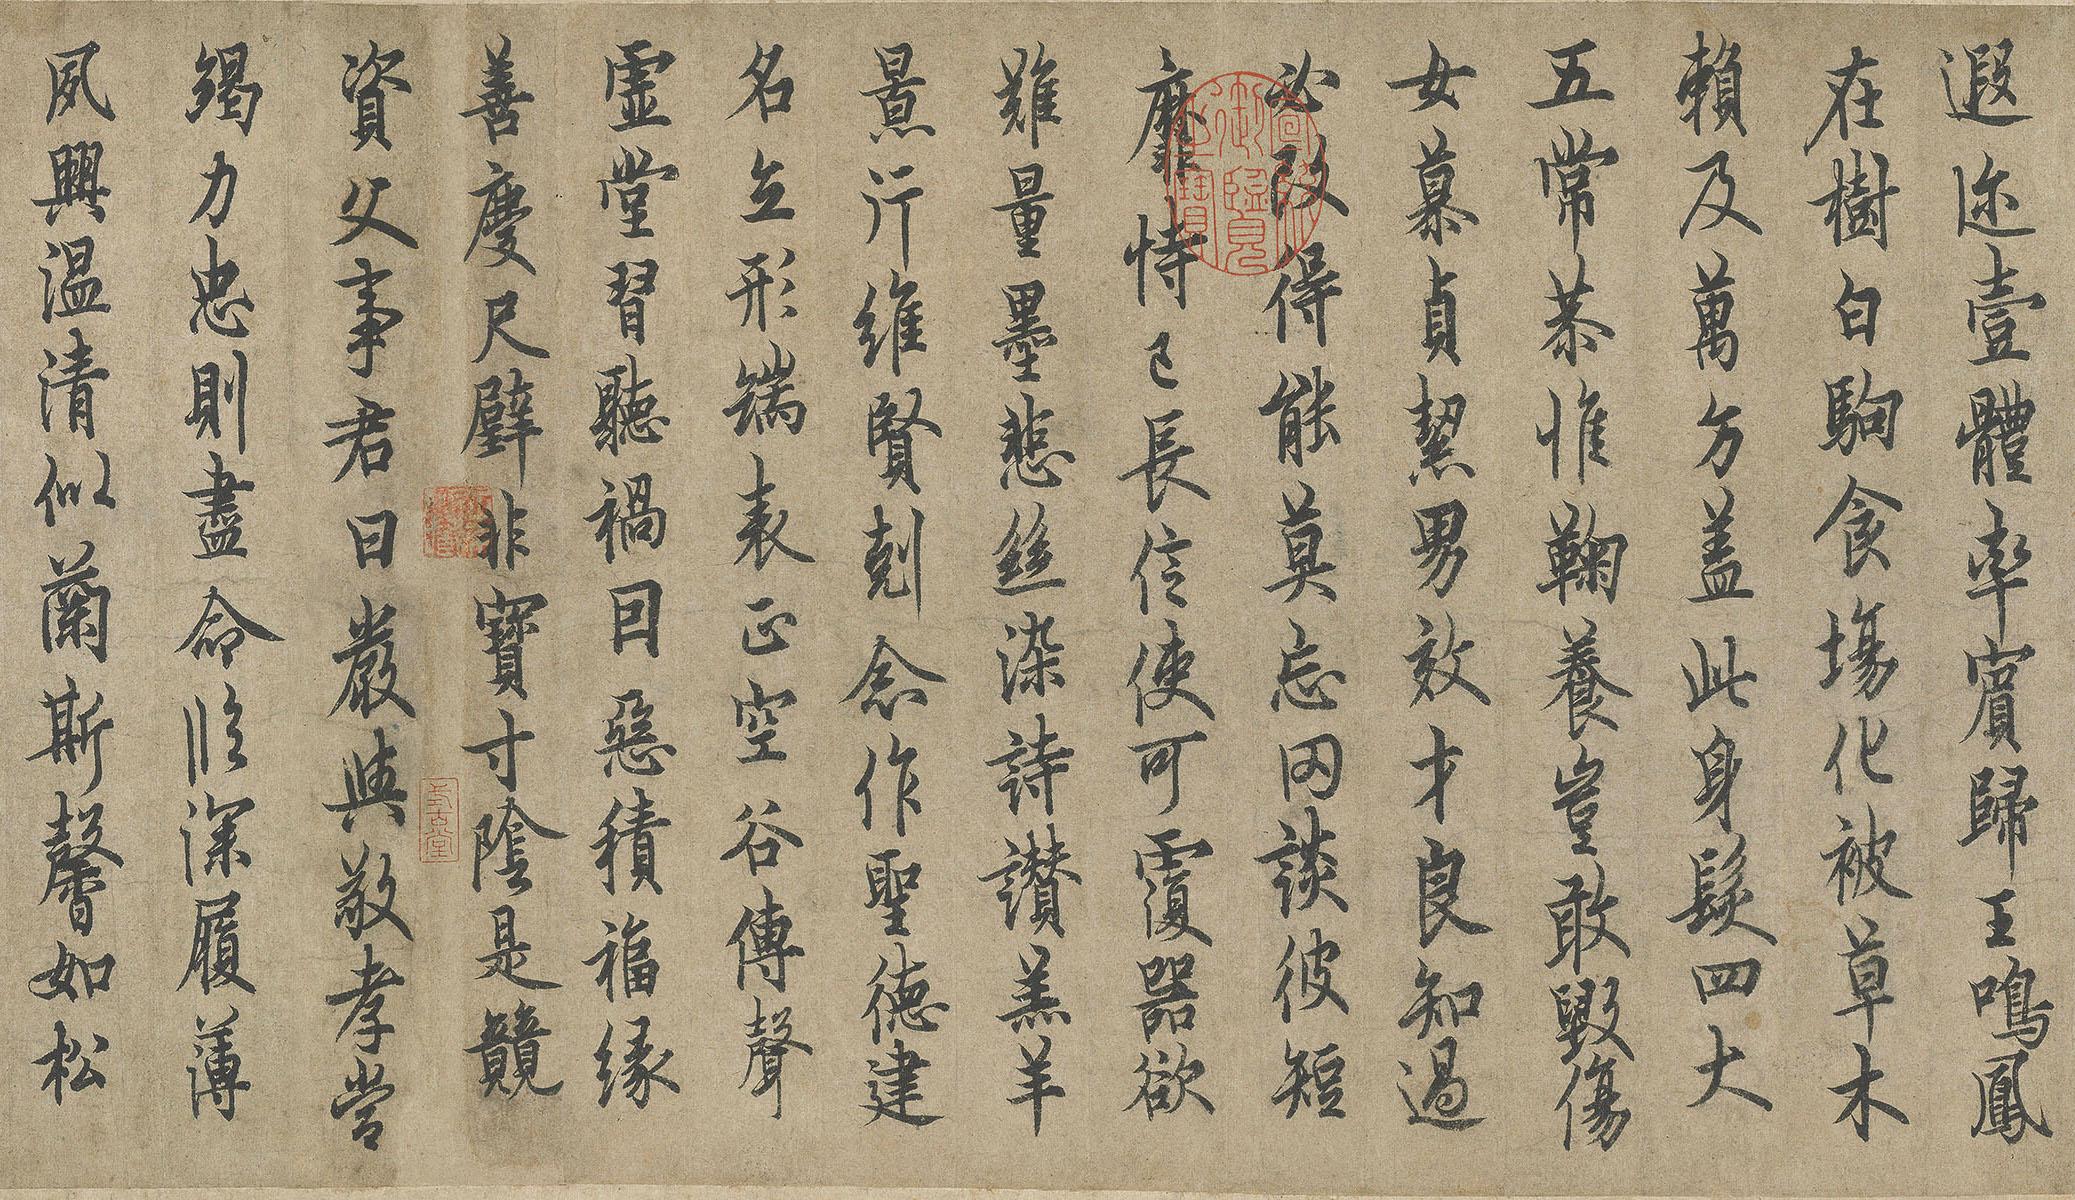 遐迩壹體率賓歸王鳴鳳
在樹白駒食場化被草木
賴及萬方蓋此身髮四大
五常恭惟鞠養豈敢毀傷
女慕貞絜男效才良知過
必改得能莫忘罔談彼短
靡恃己長信使可覆器欲
難量墨悲絲染詩讚羔羊
景行維賢剋念作聖德建
名立形端表正空谷傳聲
虛堂習聽禍因惡積福緣
善慶尺璧非寶寸陰是競
資父事君曰嚴與敬孝當
竭力忠則盡命臨深履薄
夙興溫清似蘭斯馨如松
式古堂